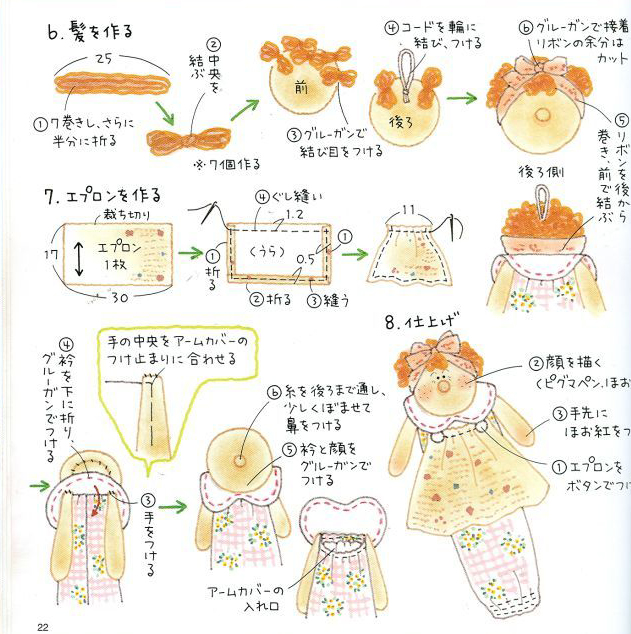 6. 髪を作る
25
①7巻きし、さらに
半分に折る
②中央を
結ぶ
※7個作る
前
③グルーガンで
結び目をつける
④コードを輪に
結び、つける
後ろ
⑥グルーガンで接着
リボンの余分は
カット
⑤リボンを後から
巻き、前で結ぶ
後ろ側
7. エプロンを作る
裁ち切り
17
エプロン
1枚
30
④ぐし縫い
1.2
(うら)
0.5
①
①折る
②折る
③縫う
11
④衿を下に折り、
グルーガンでつける
手の中央をアームカバーの
つけ止まりに合わせる
③手をつける
⑥糸を後ろまで通し、
少しくぼませて
鼻をつける
⑤衿と顔を
グルーガンで
つける
アームカバーの
入れ口
8. 仕上げ
②顔を描く
(ピグマペン、ほお
③手先に
ほお紅をつ
①エプロンを
ボタンでつけ
22